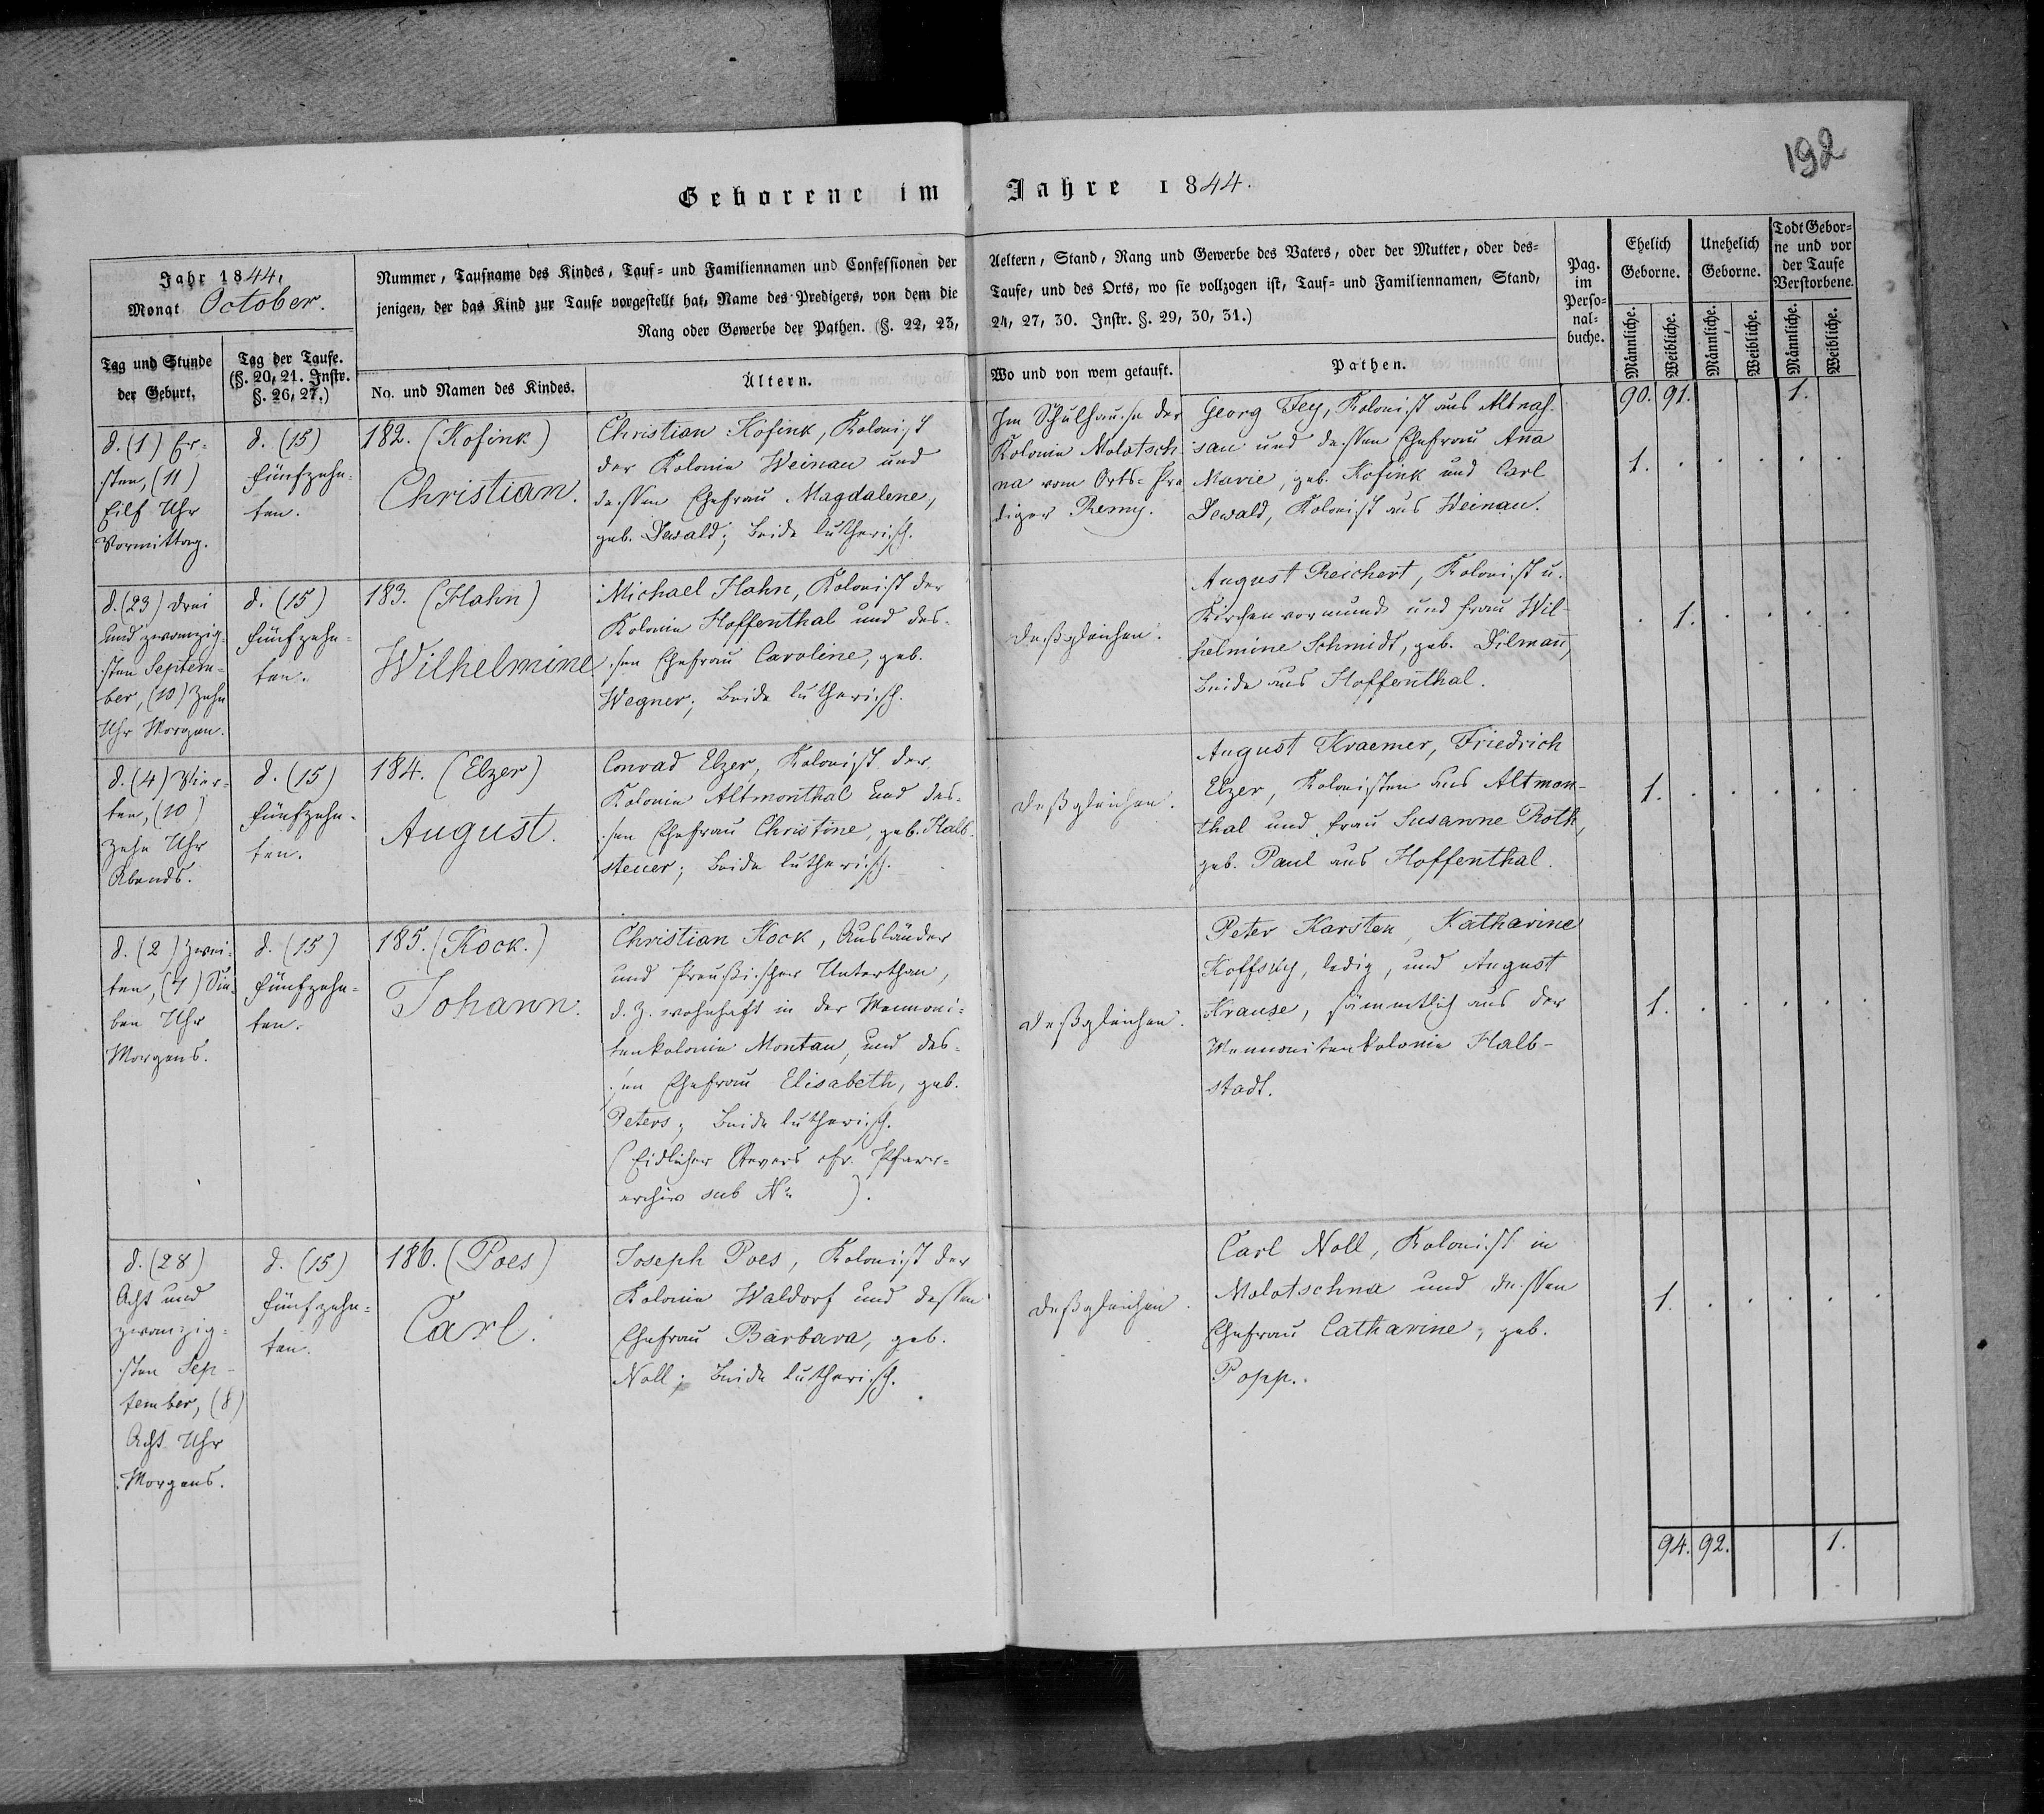 192
Geborene im Jahre 1844.
Jahr 1844.
Monat October.
Tag und Stunde
der Geburt.
Tag der Taufe.
(§. 20, 21. Instr.
§. 26, 27.)
Nummer, Taufname des Kindes, Tauf- und Familiennamen und Confessionen der
jenigen, der das Kind zur Taufe vorgestellt hat, Name des Predigers, von dem die
Rang oder Gewerbe der Pathen. (§. 22, 23,
No. und Namen des Kindes.
Ältern.
Aeltern, Stand, Rang und Gewerbe des Vaters, oder der Mutter, oder des-
Taufe, und des Orts, wo sie vollzogen ist, Tauf- und Familiennamen, Stand,
24, 27, 30. Instr. §. 29, 30, 31.)
Wo und von wem getauft.
Pathen.
Pag.
im
Perso-
nal-
buche.
Ehelich
Geborne.
Unehelich
Geborne.
Todt Gebor-
ne und vor
der Taufe
Verstorbene.
Männliche.
Weibliche.
Männliche.
Weibliche.
Männliche.
Weibliche.
90. 91. 1.
d. (1) Er-
sten, (11)
Eilf Uhr
Vormittag.
d. (15)
fünfzehn-
ten.
182. (Kofink)
Christian.
Christian Kofink, Kolonist
der Kolonie Weinau und
dessen Ehefrau Magdalene,
geb. Dewald; beide lutherisch.
Im Schulhause der
Kolonie Molotsch-
na vom Orts-Pre
diger Remy.
Georg Fey, Kolonist aus Altnas-
sau und dessen Ehefrau Anna
Marie, geb. Kofink und Carl
Dewald, Kolonist aus Weinau.
1. . . . . .
d. (23) Drei
und zwanzig-
sten Septem-
ber, (10) Zehn
Uhr Morgen.
d. (15)
fünfzehn-
ten.
183. (Hahn)
Wilhelmine.
Michael Hahn, Kolonist der
Kolonie Hoffenthal und des-
sen Ehefrau Caroline, geb.
Wegner; beide lutherisch.
Deßgleichen.
August Reichert, Kolonist u.
Kirchenvormund und Frau Wil-
helmine Schmidt, geb. Dilman,
beide aus Hoffenthal.
. 1. . . . .
d. (4) Vier-
ten, (10)
zehn Uhr
Abends.
d. (15)
fünfzehn-
ten.
184. (Elzer)
August.
Conrad Elzer, Kolonist der
Kolonie Altmonthal und des-
sen Ehefrau Christine, geb. Halb-
steuer; beide lutherisch.
Deßgleichen.
August Kraemer, Friedrich
Elzer, Kolonisten aus Altmon-
thal und Frau Susanne Roth,
geb. Paul aus Hoffenthal.
1. . . . . .
d. (2) Zwei-
ten, (7) Sie-
ben Uhr
Morgens.
d. (15)
fünfzehn-
ten.
185. (Kock.)
Johann.
Christian Kock, Ausländer
und Preußischer Unterthan,
d. Z. wohnhaft in der Mennoni-
tenkolonie Montau, und des-
sen Ehefrau Elisabeth, geb.
Peters; beide lutherisch.
(Eidlicher Revers cfr. Pfarr-
archiv sub No ).
Deßgleichen.
Peter Karsten, Katharine
Koffsky, ledig, und August
Krause, sämmtlich aus der
Mennonitenkolonie Halb-
stadt.
1. . . . . .
d. (28)
Acht und
zwanzig-
sten Sep-
tember, (8)
Acht Uhr
Morgens.
d. (15)
fünfzehn-
ten.
186. (Poes)
Carl.
Joseph Poes, Kolonist der
Kolonie Waldorf und dessen
Ehefrau Barbara, geb.
Noll; beide lutherisch.
Deßgleichen.
Carl Noll, Kolonist in
Molotschna und dessen
Ehefrau Catharine, geb.
Popp.
1. . . . . .
94. 92. 1.